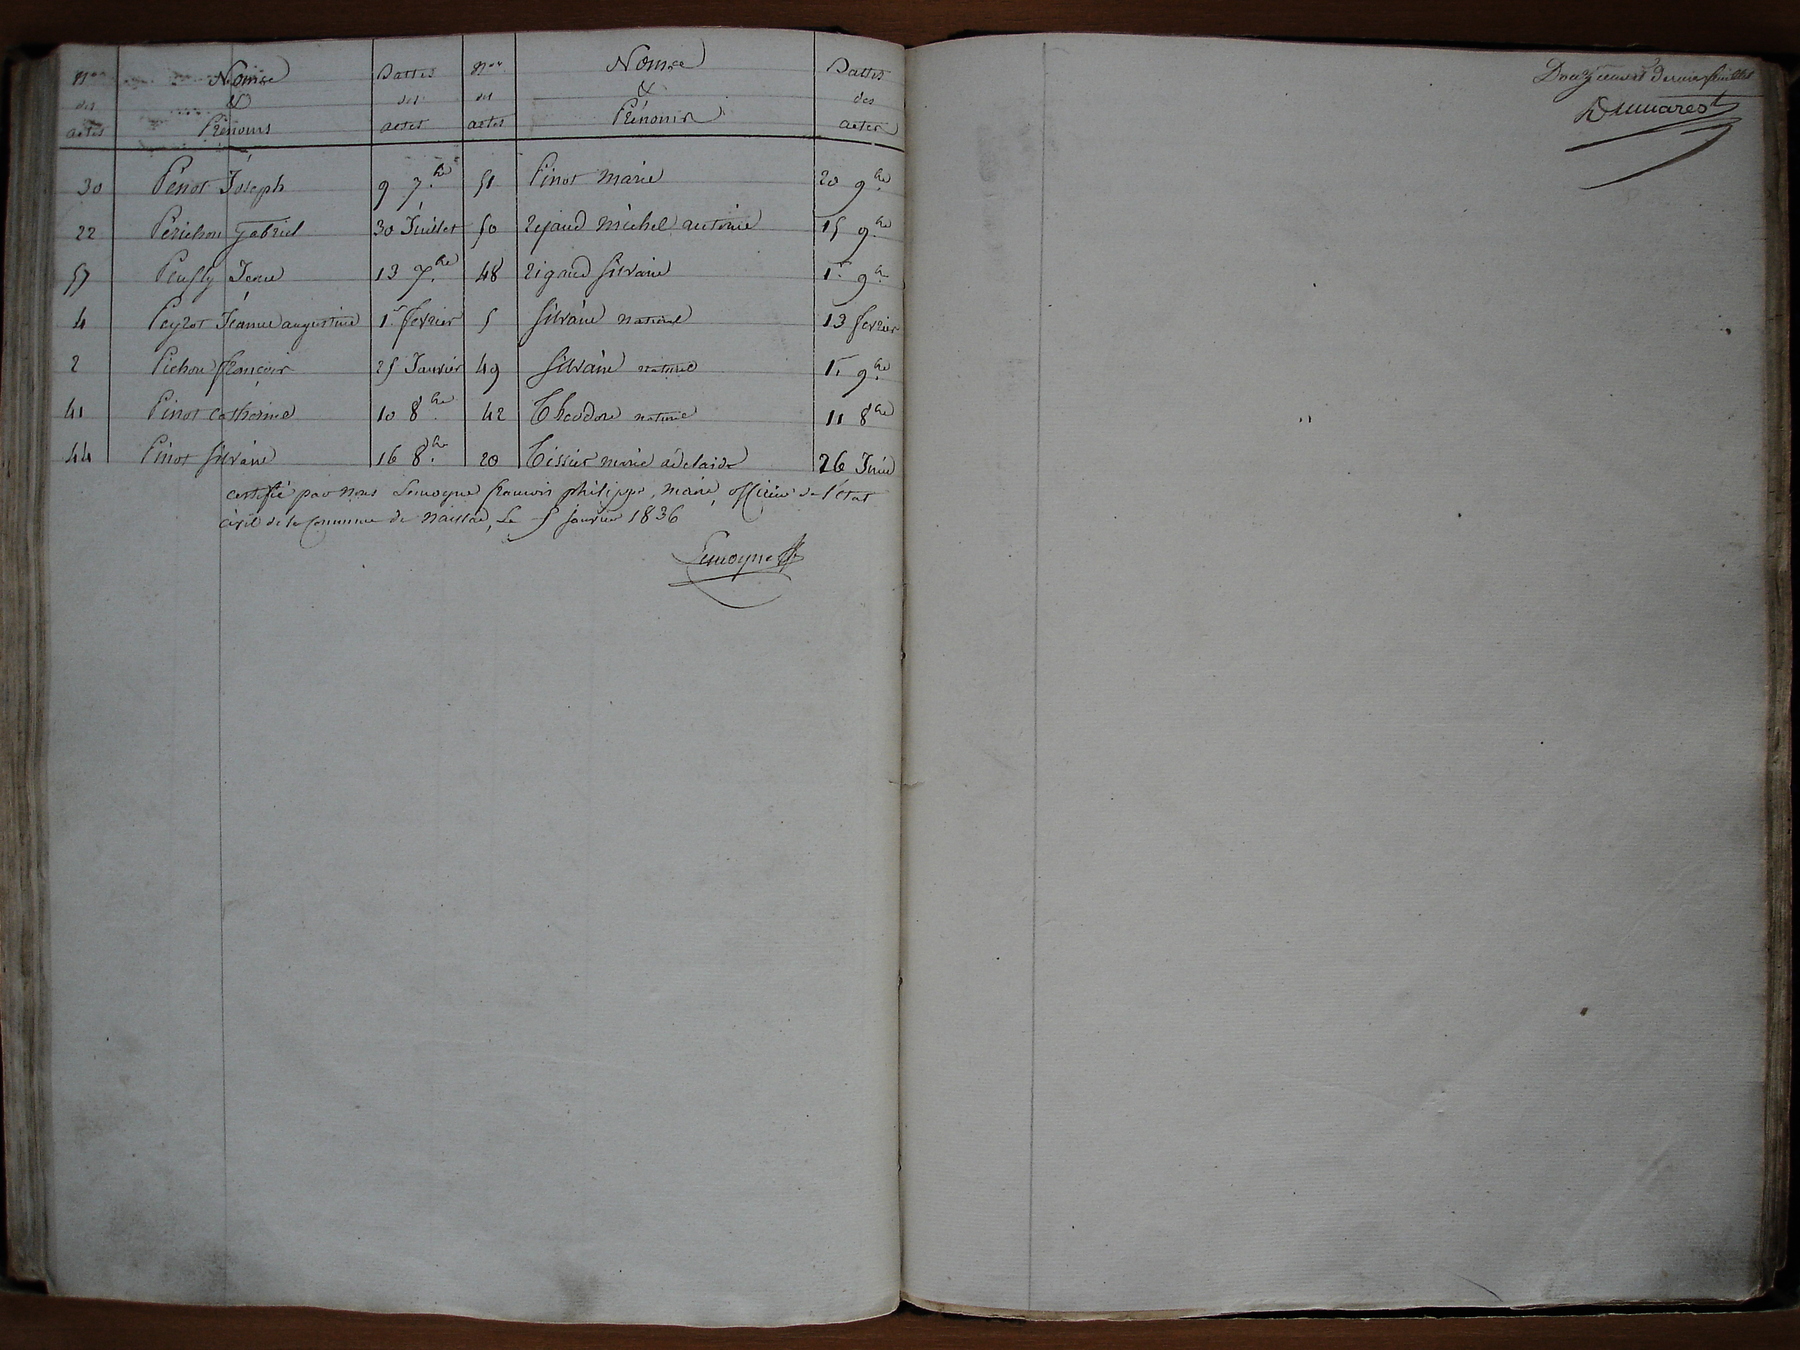 Nos Noms Dattes Nos Noms Dattes
des & des des & des
actes Prénoms actes actes Prénoms actes
30 Penot Joseph 9 7.bre 51 Pinot marie 20 9.bre
22 Périchon Gabriel 30 Juillet 50 Rejaud michel antoine 15 9.bre
57 Jeane 13 7.bre 48 Rigaud Silvain 1.r 9.bre
4 Peyrot Jeanne augustine 1.r fevrier 5 Silvain naturel 13 fevrier
2 Pichon françois 25 Janvier 49 Silvain naturel 1.r 9.bre
41 Pinot catherine 10 8.bre 42 Théodore naturel 11 8.bre
44 Pinot Silvain 16 8.bre 20 Tissier marie adelaide 26 Juin
certifié par nous Lemoyne françois philippe, maire, officier de l'état
civil de la Commune de Naillac, Le 5 janvier 1836
Lemoyne
Douzieme et dernier feuillet
Dumarest